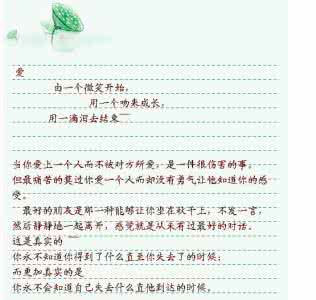 爱
由一个微笑开始，
用一个吻来成长，
用一滴泪去结束￣
当你爱上一个人而不被对方所爱，是一件很伤害的事。
但最痛苦的莫过你爱一个人而却没有勇气让他知道你的感
受。
最好的朋友是那一种能够让你坐在秋千上，不发一言，
然后静静地一起离开，感觉就是从未有过最好的对话。
这是真实的
你永不知道你得到了什么直至你失去了的时候；
而更加真实的是
你永不会知道自己失去什么直他到达的时候。